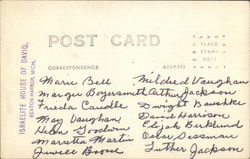 ISRAELITE HOUSE OF DAVID,
BENTON HARBOR, MICH.
POST CARD
CORRESPONDENCE
ADDRESS
PLACE
STAMP
HERE
Marie Bell
Margie Boyersmith
Freda Caudle
May Vaughan
Helen Goodwin
Maretta Martin
Jewell Boone
Mildred Vaughan
Arthur Jackson
Dwight Baushke
David Harrison
Elijah Berklund
Oscar Sassman
Luther Jackson